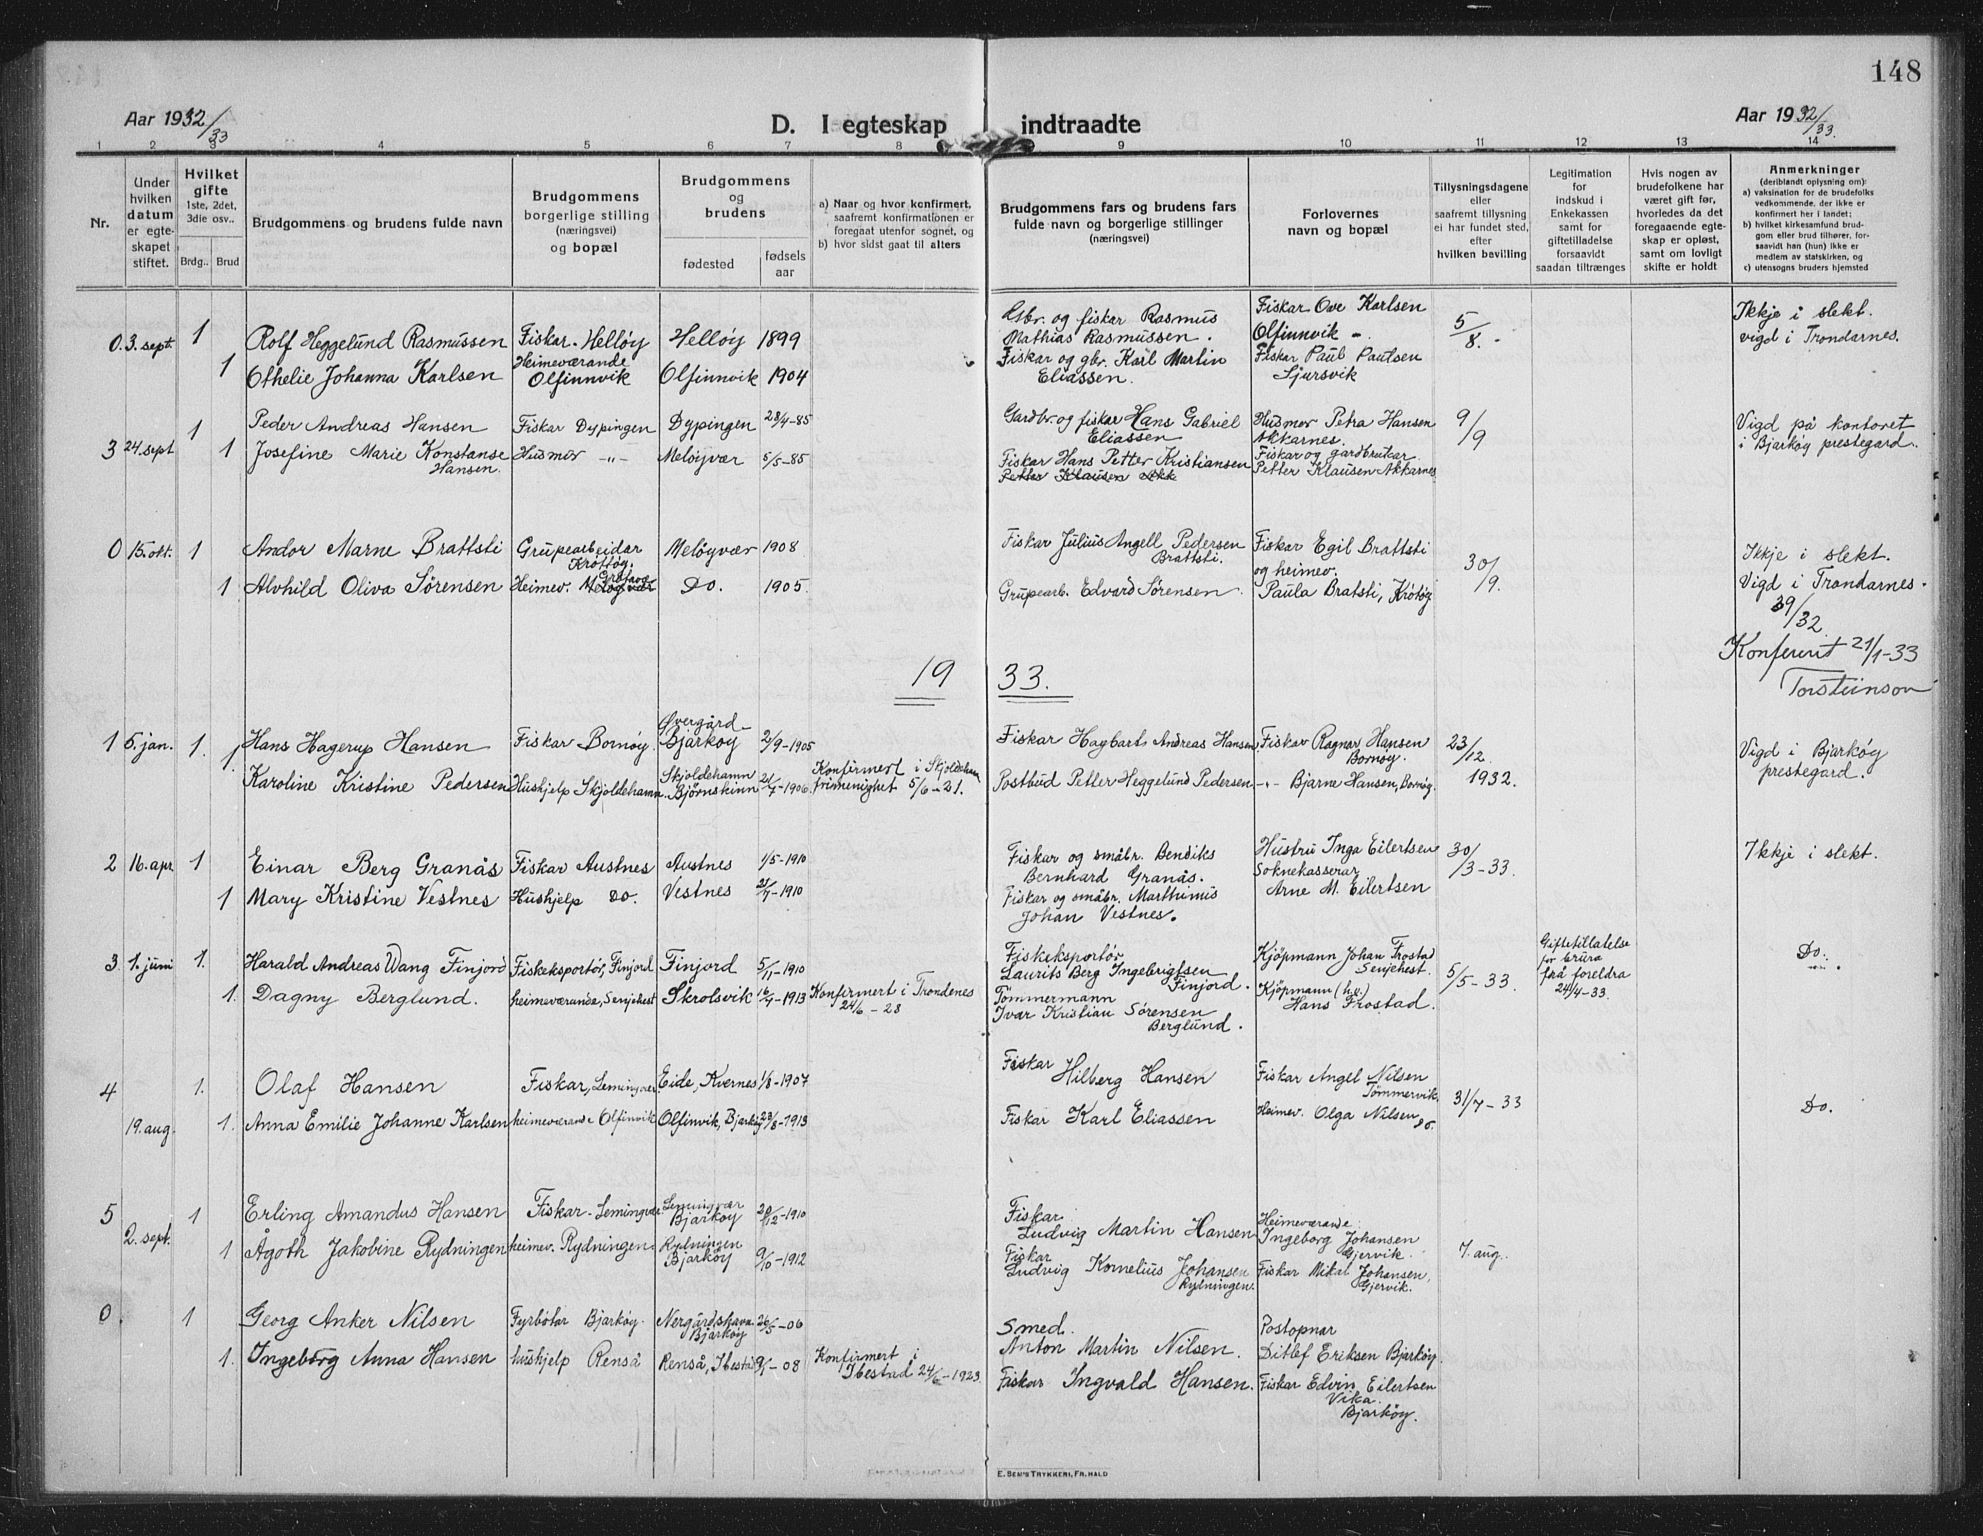 148
Aar 1932/33
D. I egteskap indtraadte
Aar 1932/33.
1 2 3 4 5 6 7 8 9 10 11 12 13 14
Nr.
Under hvilken datum er egte- skapet stiftet.
Hvilket gifte
1ste, 2det, 3die osv..
Brdg.. Brud
Brudgommens og brudens fulde navn
Brudgommens borgerlige stilling (næringsvei) og bopæl
Brudgommens og brudens
fødested
fødsels aar
a) Naar og hvor konfirmert, saafremt konfirmationen er foregaat utenfor sognet, og
b) hvor sidst gaat til alters
Brudgommens fars og brudens fars fulde navn og borgerlige stillinger (næringsvei)
Forlovernes navn og bopæl
Tillysningsdagene eller saafremt tillysning ei har fundet sted, efter hvilken bavilling
Legitimation for indskud i Enkekassen samt for giftetilladelse forsaavidt saadan tiltrænges
Hvis nogen av brudefolkene har været gift før, hvorledes da det foregaaende egte- skap er opløst, samt om lovligt skifte er holdt
Anmerkninger
(deriblandt oplysning om):
a) vaksination for de brudefolks vedkommende, der ikke er konfirmert her i landet;
b) hvilket kirkesamfund brud- gom eller brud tilhører, for- saavidt han (hun) ikke er medlem av statskirken, og
c) utensogns bruders hjemsted
0. 3. sept. 1 Rolf Heggelund Rasmussen Fiskar. Helløy Helløy 1899
Gbr. og fiskar Rasmus Mathias Rasmussen.
Fiskar Ove Karlsen Olfinnvik
5/8.
Ikkje i slekt.
vigd i Trondarnes.
1 Othelie Johanna Karlsen Heimeværande Olfinnvik Olfinnvik 1904
Fiskar og gbr. Karl Martin Eliassen.
Fiskar Paul Paulsen Sjursvik
3 24. sept 1 Peder Andreas Hansen Fiskar Dypingen Dypingen 28/4-85
Gardbr. og fiskar Hans Gabriel Eliassen
Husmor Petra Hansen Akkarnes.
9/9
Vigd på kontoret i Bjarkøy prestegard.
1 Josefine Marie Konstanse Hansen. Husmor -"- Meløyvær 5/5-85
Fiskar Hans Petter Kristiansen
Petter Klausen Akk
Fiskar og gardbrukar Petter Klausen Akkarnes
0 15. okt. 1 Andor Marne Brattsti Grupearbeidar Krøttøy. Meløyvær 1908
Fiskar Julius Angell Pedersen Brattsti.
Fiskar Egil Brattsti og heimev.
30/9.
Ikkje i slekt.
Vigd i Trondarnes.
1 Alvhild Oliva Sørensen Heimev. Meløyvær Do. 1905
Grupearb. Edvard Sørensen.
Paula Bratsti, Krøtøy
/32
Konferert 21/1-33
Torsteinson
19 33.
1 5. jan. 1. Hans Hagerup Hansen Fiskar Bornøy. Øvergård Bjarkøy 2/9-1905
Fiskar Hagbart Andreas Hansen
Fiskar Ragnar Hansen Bornøy.
23/12. 1932.
Vigd i Bjarkøy prestegard.
1. Karoline Kristine Pedersen Hushjelp Skjoldehamn Skjoldehamn Bjørnskinn 21/7-1906. Konfirmert i Skjoldehamn frimenighet 5/6-21.
Postbud Petter Heggelund Pedersen
-"- Bjarne Hansen, Bornøy.
2 16. apr. 1 Einar Berg Granås Fiskar Austnes Austnes 1/5-1910
Fiskar og småbr. Bendiks Bernhard Granås.
Hustru Inga Eilertsen
30/3-33.
Ikkje i slekt.
1 Mary Kristine Vestnes Hushjelp Do. Vestnes 21/7-1910
Fiskar og småbr. Marthinus Johan Vestnes.
Soknekasserar Arne M. Eilertsen
3 1. juni 1. Harald Andreas Wang Finjord Fiskeksportør, Finjord Finjord 5/11-1910
Fiskeksportør Laurits Berg Ingebrigtsen Finjord.
Kjøpmann Johan Frostad Senjehest.
5/5-33.
Giftetillatelse for brura frå foreldra 24/4-33.
Do.
1. Dagny Berglund. heimeværande, Senjehest Skrolsvik 16/7-1913 Konfirmert i Trondenes 24/6-28
Tømmermann Ivar Kristian Sørensen Berglund.
Kjøpmann (h.v.) Hans Frostad.
4 1. Olaf Hansen Fiskar, Lemingvær Eide, Kvernes 1/8-1907
Fiskar Hilberg Hansen
Fiskar Angel Nilsen Tømmervik,
31/7-33
Do.
19. aug. 1. Anna Emilie Johanne Karlsen heimeværande Olfinvik Olfinvik, Bjarkøy 23/8-1913
Fiskar Karl Eliassen
Heimev. Olga Nilsen, do.
5 2. sept. 1 Erling Amandus Hansen Fiskar - Lemingvær Lemingvær Bjarkøy 20/12-1910
Fiskar Ludvig Martin Hansen
Heimeværande Ingeborg Johansen Gjervik.
7. aug.
1 Ågoth Jakobine Rydningen heimev. Rydningen. Rydningen Bjarkøy 9/10-1912
Fiskar Ludvig Kornelius Johansen Rydningen.
Fiskar Mikal Johansen, Gjervik.
0. 1 Georg Anker Nilsen Fyrbøtar Bjarkøy. Nergårdshavn Bjarkøy 26/5-06
Smed. Anton Martin Nilsen.
Postopnar Ditlef Eriksen Bjarkøy.
1. Ingeborg Anna Hansen hushjelp Renså Renså, Ibestad 9/1-08 Konfirmert i Ibestad 24/6-1923
Fiskar Ingvald Hansen.
Fiskar Edvin Eilertsen Vika. Bjarkøy.
E. Sem's Trykkeri, Fr.hald